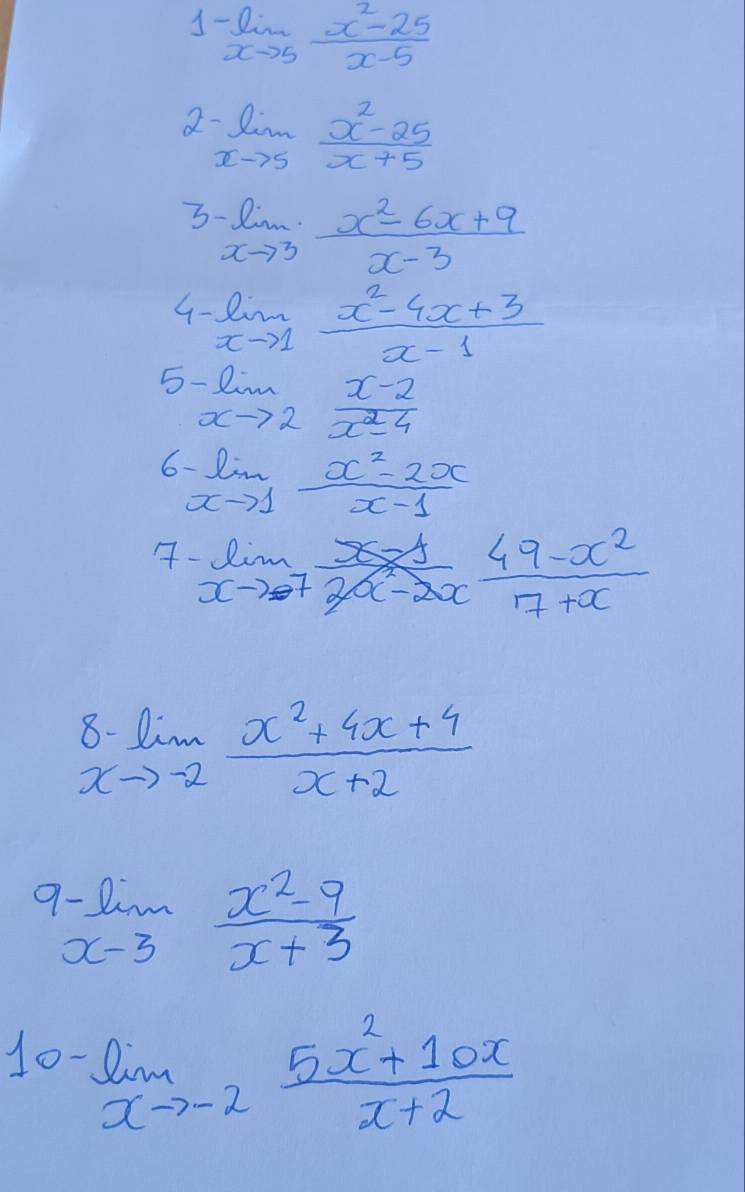 1-lim x→5 (x²-25)/(x-5)
2-lim x→5 (x²-25)/(x+5)
3-lim. x→3 (x²-6x+9)/(x-3)
4-lim x→1 (x²-4x+3)/(x-1)
5-lim x→2 (x-2)/(x²-4)
6-lim x→1 (x²-2x)/(x-1)
7-lim x→-7 (49-x²)/(7+x)
8-lim x→-2 (x²+4x+4)/(x+2)
9-lim x-3 (x²-9)/(x+3)
10-lim x→-2 (5x²+10x)/(x+2)